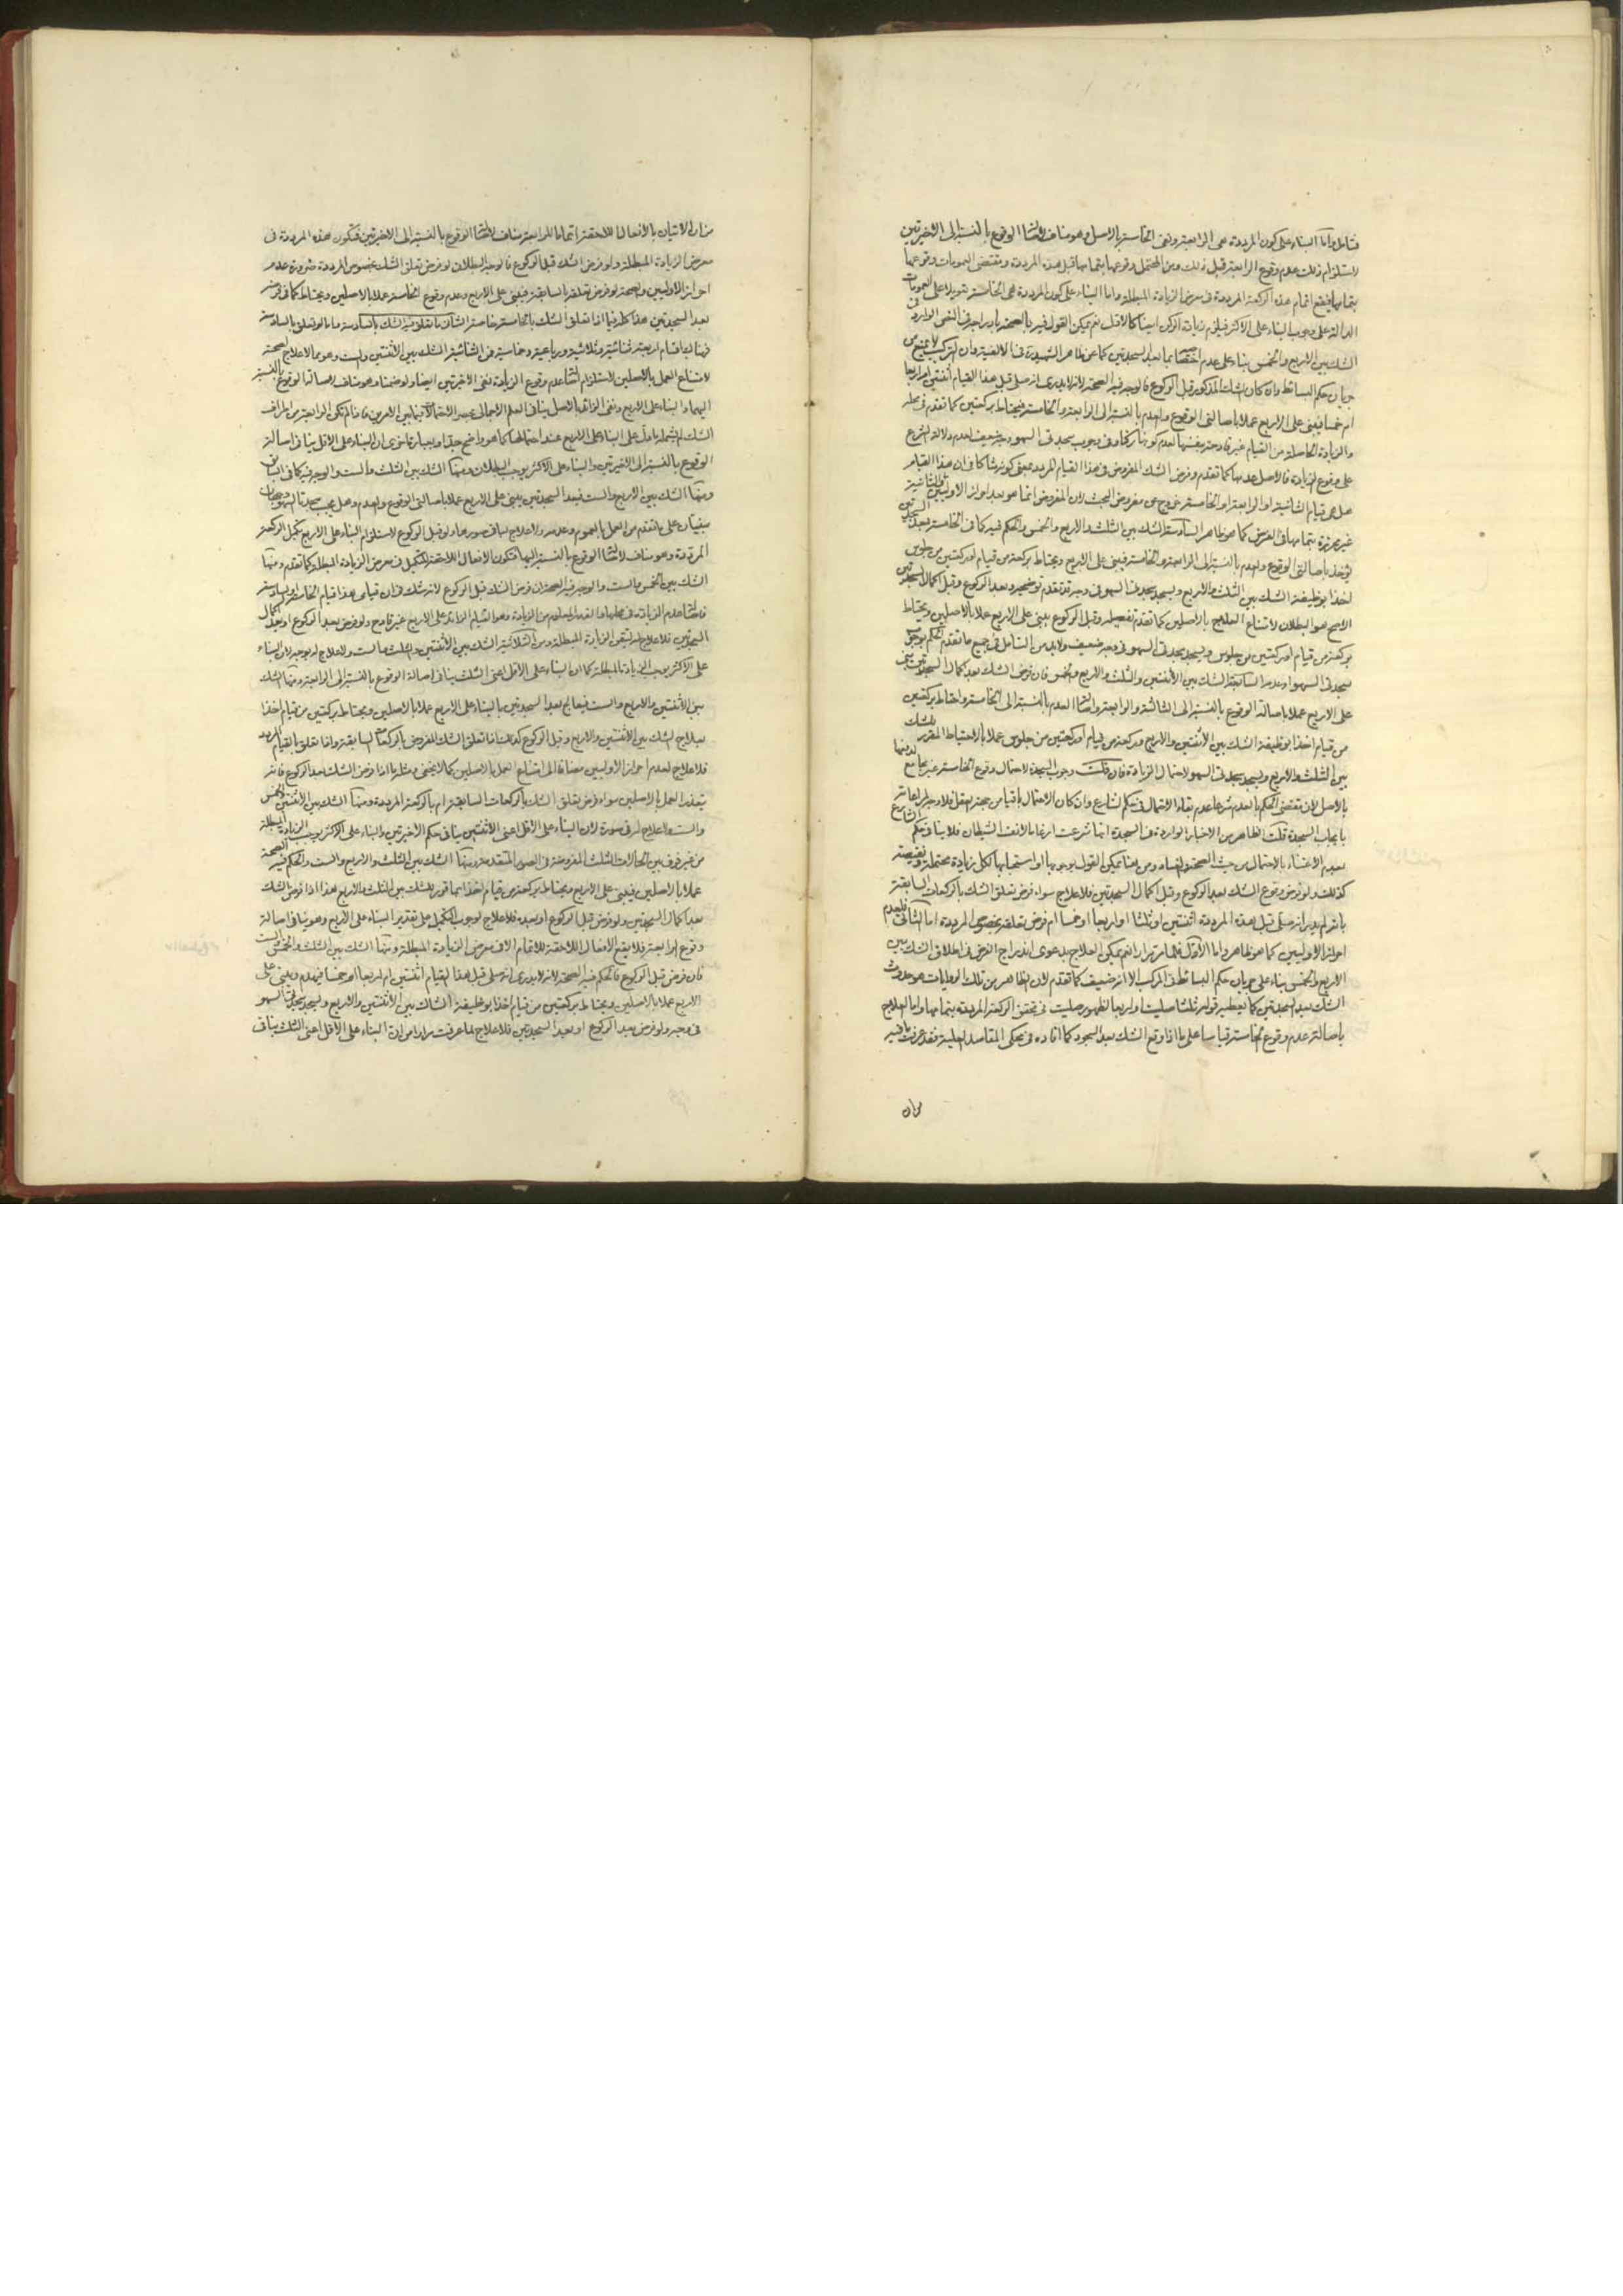 فتامل واما البناء على كون المرددة هى الرابعة ونفى الخامسة بالاصل وهو مناف لاصالة الوقوع بالنسبة الى الاخيرتين
لاستلزام ذلك عدم وقوع الرابعة قبل ذلك ومن المحتمل وقوعها بتمامها قبل هذه المرددة ومقتضى العمومات وقوعها
بتمامها فيقع اتمام هذه الركعة المرددة فى معرض الزيادة المبطلة واما البناء على كون المرددة هى الخامسة تعويلا على العمومات
الدالة على وجوب البناء على الاكثر فيلزم زيادة الركن ايضا كالاول نعم يمكن القول فيه بالصحة
الشك بين الاربع والخمس بناء على عدم اختصاصه بما بعد السجدتين كما هو ظاهر الشهيد فى الالفية وان التركيب لا يمنع من
جريان حكم البسائط وان كان الشك المذكور قبل الركوع فالوجه فيه الصحة لانه لا يدرى انه صلى قبل هذا القيام اثنتين او اربعا
ام خمسا فيبنى على الاربع عملا باصالتى الوقوع والعدم بالنسبة الى الرابعة والخامسة فيحتاط بركعتين كما تقدم فى محله
والزيادة الحاصلة من القيام غير قادحة
على وقوع الزيادة فالاصل عدمها كما تقدم وفرض الشك المفروض فى هذا القيام المردد بمعنى كونه شاكا فى ان هذا القيام
هل هى قيام الثانية او الرابعة او الخامسة خروج عن مفروض البحث لان المفروض انما هو بعد احراز الاوليين والثانية
غير محرزة بتمامها فى الفرض كما هو ظاهر السادسة الشك بين الثلث والاربع والخمس والحكم فيه كما فى الخامسة فبعد السجدتين
يؤخذ باصالتى الوقوع والعدم بالنسبة الى الرابعة والخامسة فيبنى على الاربع ويحتاط بركعة من قيام او ركعتين من جلوس
اخذا بوظيفة الشك بين الثلث والاربع ويسجد سجدتى السهو فى وجه قد تقدم توضيحه وبعد الركوع وقبل اكمال السجدتين
الاصح هو البطلان لامتناع العلاج بالاصلين كما تقدم تفصيله وقبل الركوع يبنى على الاربع عملا بالاصلين ويحتاط
بركعة من قيام او ركعتين من جلوس ويسجد سجدتى السهو فى وجه ضعيف ولا بد من التامل فى جميع ما تقدم
سجدتى السهو وعدمه السابعة الشك بين الاثنتين والثلث والاربع والخمس فان فرض الشك بعد اكمال السجدتين بنى
على الاربع عملا باصالة الوقوع بالنسبة الى الثالثة والرابعة واصالة العدم بالنسبة الى الخامسة واحتاط بركعتين
من قيام اخذا بوظيفة الشك بين الاثنتين والاربع وبركعة من قيام او ركعتين من جلوس عملا بالاحتياط المقرر للشك
بين الثلث والاربع ويسجد سجدتى السهو لاحتمال الزيادة فان قلت وجوب السجدة لاحتمال وقوع الخامسة غير مجامع
بالاصل لان مقتضى الحكم بالعدم شرعا عدم بقاء الاحتمال فى حكم الشارع وان كان الاحتمال باقيا من جهة العقل فلا وجه
بايجاب السجدة قلت الظاهر من الاخبار الواردة فى السجدة انما شرعت ارغاما لانف الشيطان فلا ينافى حكم الشارع
بعدم الاعتناء بالاحتمال من حيث الصحة والفساد ومن هنا يمكن القول بوجوبها او استحبابها لكل زيادة محتملة ونقيصة
كذلك ولو فرض وقوع الشك بعد الركوع وقبل اكمال السجدتين فلا علاج سواء فرض تعلق الشك بالركعات السابقة
بان لم يدر انه صلى قبل هذه المرددة اثنتين او ثلثا او اربعا او خمسا ام فرض تعلقه بخصوص المرددة اما الثانى فلعدم
احراز الاوليين كما هو ظاهر واما الاول نعم يمكن العلاج بدعوى اندراج الفرض فى اطلاق الشك بين
الاربع والخمس بناء على جريان حكم البسائط فى المركب الا انه ضعيف كما تقدم لان الظاهر من تلك الروايات هو حدوث
الشك بعد السجدتين كما يعطيه قوله ثلثا صليت او اربعا لظهور صليت فى تحقق الركعة المرددة بتمامها واما العلاج
باصالة عدم وقوع الخامسة قياسا على ما اذا وقع الشك بعد السجود كما افاده فى محكى المقاصد العلية فقد عرفت ما فيه
من ان الاتيان بالافعال اللاحقة اتماما للرابعة مناف لاصالة الوقوع بالنسبة الى الاخيرتين فتكون هذه المرددة فى
معرض الزيادة المبطلة ولو فرض الشك قبل الركوع فالوجه البطلان لو فرض تعلق الشك بخصوص المرددة ضرورة عدم
احراز الاوليين والصحة لو فرض تعلقه بالسابقة فيبنى على الاربع وعدم وقوع الخامسة عملا بالاصلين ويحتاط كما فى فرضه
بعد السجدتين هذا كله فيما اذا تعلق الشك بالخامسة
فهنا ايضا اقسام اربعة ثنائية وثلاثية ورباعية وخماسية فمن الثنائية الشك بين الاثنتين والست وهو مما لا علاج لصحته
لامتناع العمل بالاصلين لاستلزام اصالة عدم وقوع الزيادة نفى الاخيرتين ايضا ولو ضمنا وهو مناف لاصالة الوقوع بالنسبة
اليهما والبناء على الاربع ونفى الزائد بالاصل ينافى العلم الاجمالى
الشك لم يشمله ما دل على البناء على الاربع عند احتمالها كما هو واضح جدا وبعبارة اخرى ان البناء على الاقل ينافى اصالة
الوقوع بالنسبة الى الاخيرتين والبناء على الاكثر يوجب البطلان ومنها الشك بين الثلث والست والوجه فيه كما فى السابق
ومنها الشك بين الاربع والست فبعد السجدتين يبنى على الاربع عملا باصالتى الوقوع والعدم وهل يجب سجدتا السهو وجهان
مبنيان على ما تقدم من العمل بالعموم وعدمه ولا علاج لها فى صورة ما لو قبل الركوع لاستلزام البناء على الاربع تكميل الركعة
المرددة وهو مناف لاصالة الوقوع بالنسبة اليها فتكون الافعال اللاحقة للتكميل فى معرض الزيادة المبطلة كما تقدم ومنها
الشك بين الخمس والست والوجه فيه الصحة ان فرض الشك قبل الركوع لانه شك فى ان قيامى هذا قيام الخامسة او السادسة
فاصالة عدم الزيادة فى محلها والقدر المعلوم من الزيادة وهو القيام الزائد على الاربع غير قادح ولو فرض بعد الركوع او بعد اكمال
السجدتين فلا علاج له لتيقن الزيادة المبطلة ومن الثلاثية الشك بين الاثنتين والثلث والست ولا علاج له بوجه لان البناء
على الاكثر يوجب الزيادة المبطلة كما ان البناء على الاقل اعنى الثلث ينافى اصالة الوقوع بالنسبة الى الرابعة ومنها الشك
بين الاثنتين والاربع والست فيعالج بعد السجدتين بالبناء على الاربع عملا بالاصلين ويحتاط بركعتين من قيام اخذا
بعلاج الشك بين الاثنتين والاربع وقبل الركوع كذلك اذا تعلق الشك المفروض بالركعات السابقة واذا تعلق بالقيام المردد
فلا علاج لعدم احراز الاوليين مضافا الى امتناع العمل بالاصلين كما لا يخفى ومثله ما اذا فرض الشك بعد الركوع فانه
يتعذر العمل بالاصلين سواء فرض تعلق الشك بالركعات السابقة ام بالركعة المرددة ومنها الشك بين الاثنتين والخمس
والست ولا علاج له فى صورة لان البناء على الاقل اعنى الاثنتين ينافى حكم الاخيرتين والبناء على الاكثر يوجب الزيادة المبطلة
من غير فرق بين الحالات الثلث المفروضة فى الصور المتقدمة ومنها الشك بين الثلث والاربع والست والحكم فيه الصحة
عملا بالاصلين فيبنى على الاربع ويحتاط بركعة من قيام اخذا بما قرر للشك بين الثلث والاربع هذا اذا فرض الشك
بعد اكمال السجدتين ولو فرض قبل الركوع او بعده فلا علاج لوجوب التكميل على تقدير البناء على الاربع وهو ينافى اصالة
وقوع الرابعة فلا يقع الافعال اللاحقة للاتمام الا فى معرض الزيادة المبطلة ومنها الشك بين الثلث والخمس والست
فان فرض قبل الركوع فالحكم فيه الصحة لانه لا يدرى انه صلى قبل هذا القيام اثنتين ام اربعا او خمسا فيهدم ويبنى على
الاربع عملا بالاصلين ويحتاط بركعتين من قيام اخذا بوظيفة الشاك بين الاثنتين والاربع ويسجد سجدتى السهو
فى وجه ولو فرض بعد الركوع او بعد السجدتين فلا علاج لما عرفت مرارا من ان البناء على الاقل اعنى الثلث ينافى